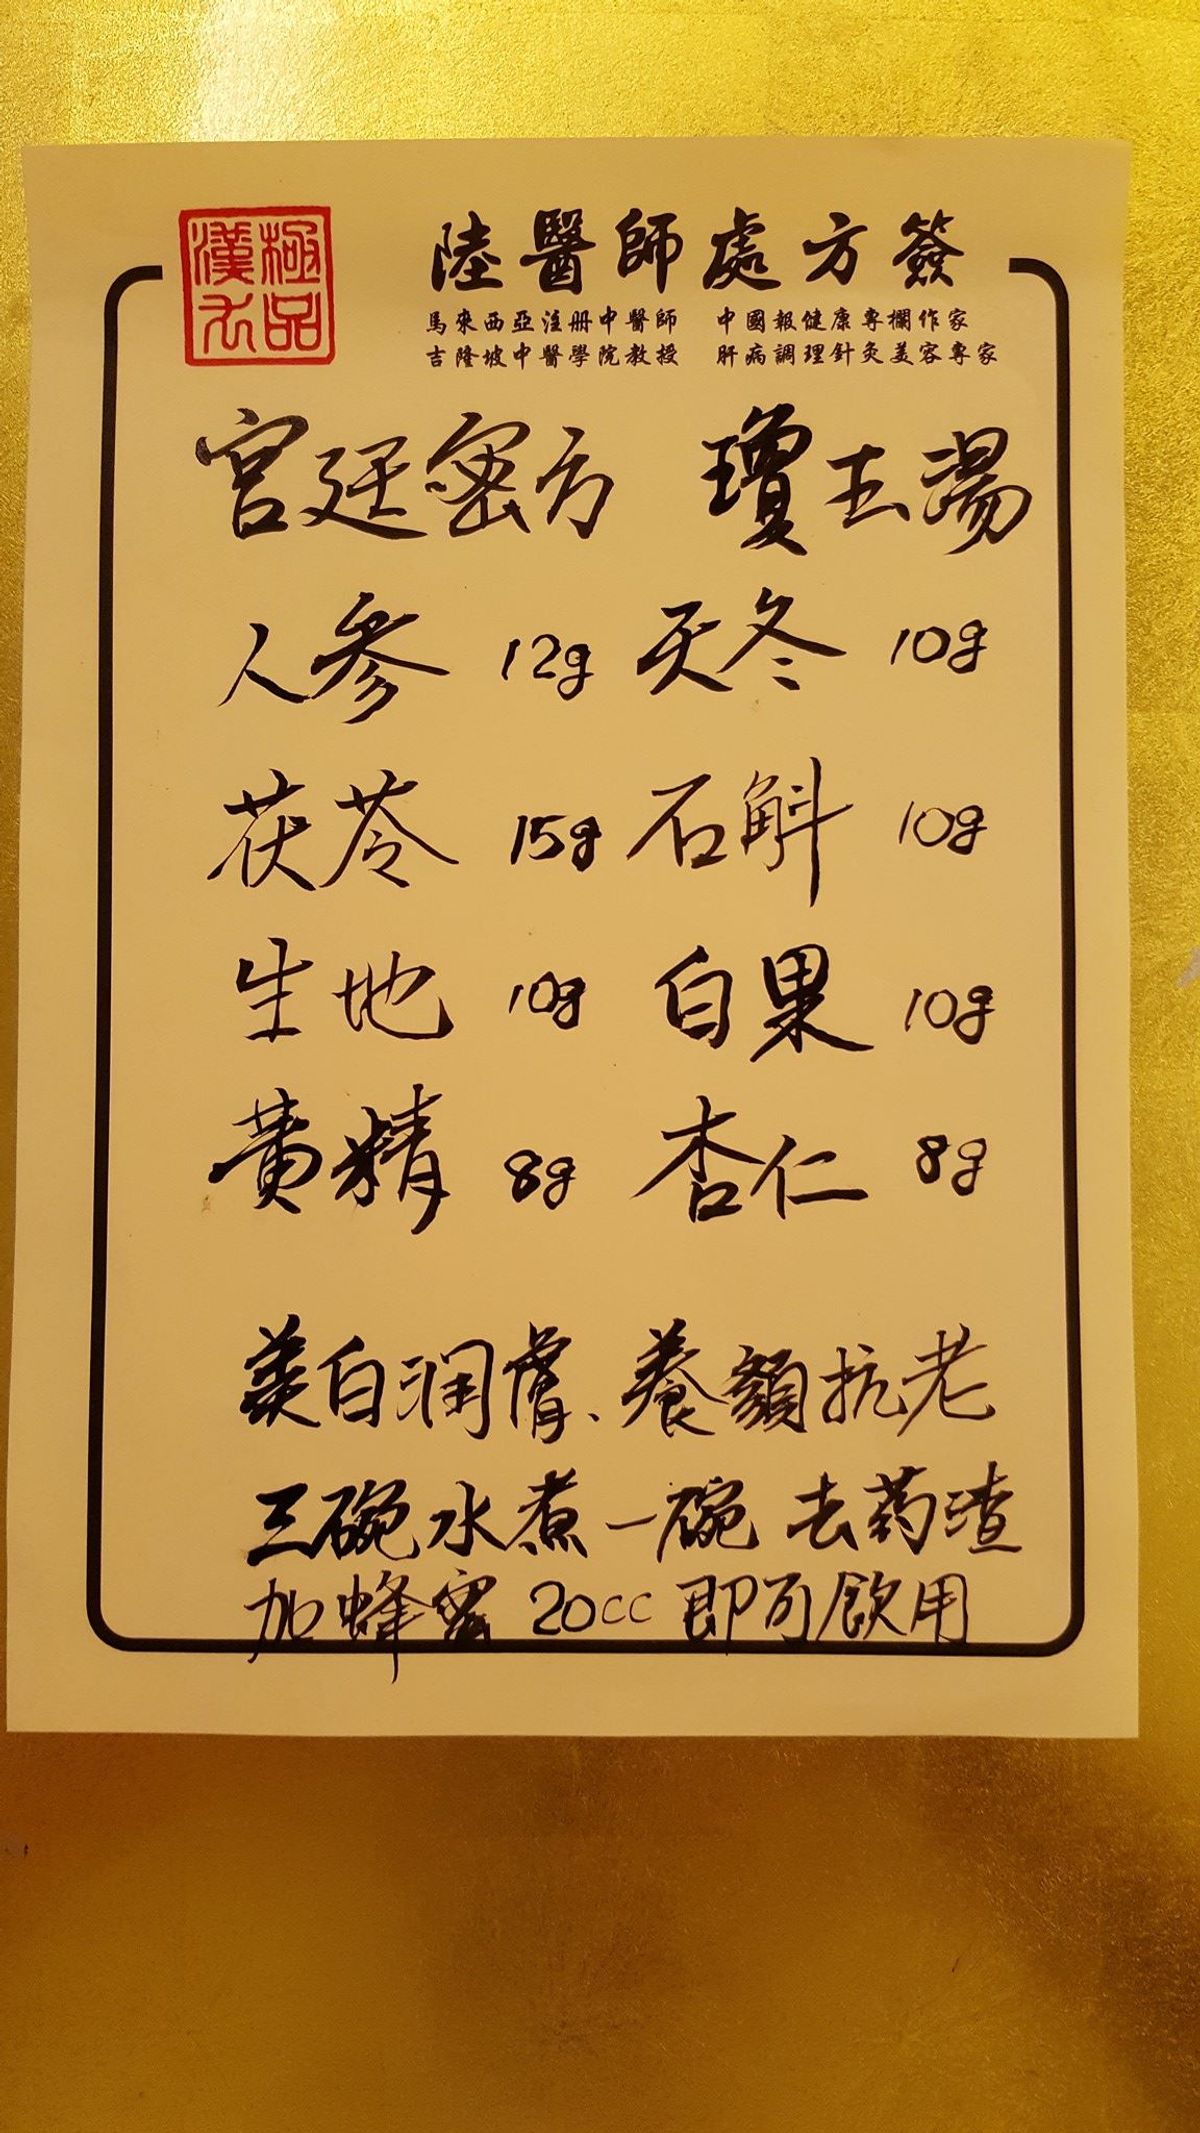 極品漢方
陸醫師處方簽
馬來西亞注册中醫師 中國報健康專欄作家
吉隆坡中醫學院教授 肝病調理針灸美容專家
宮廷密方 瓊玉湯
人參 12g 天冬 10g
茯苓 15g 石斛 10g
生地 10g 白果 10g
黄精 8g 杏仁 8g
美白润膚、養顏抗老
三碗水煮一碗 去药渣
加蜂蜜 20cc 即可飲用